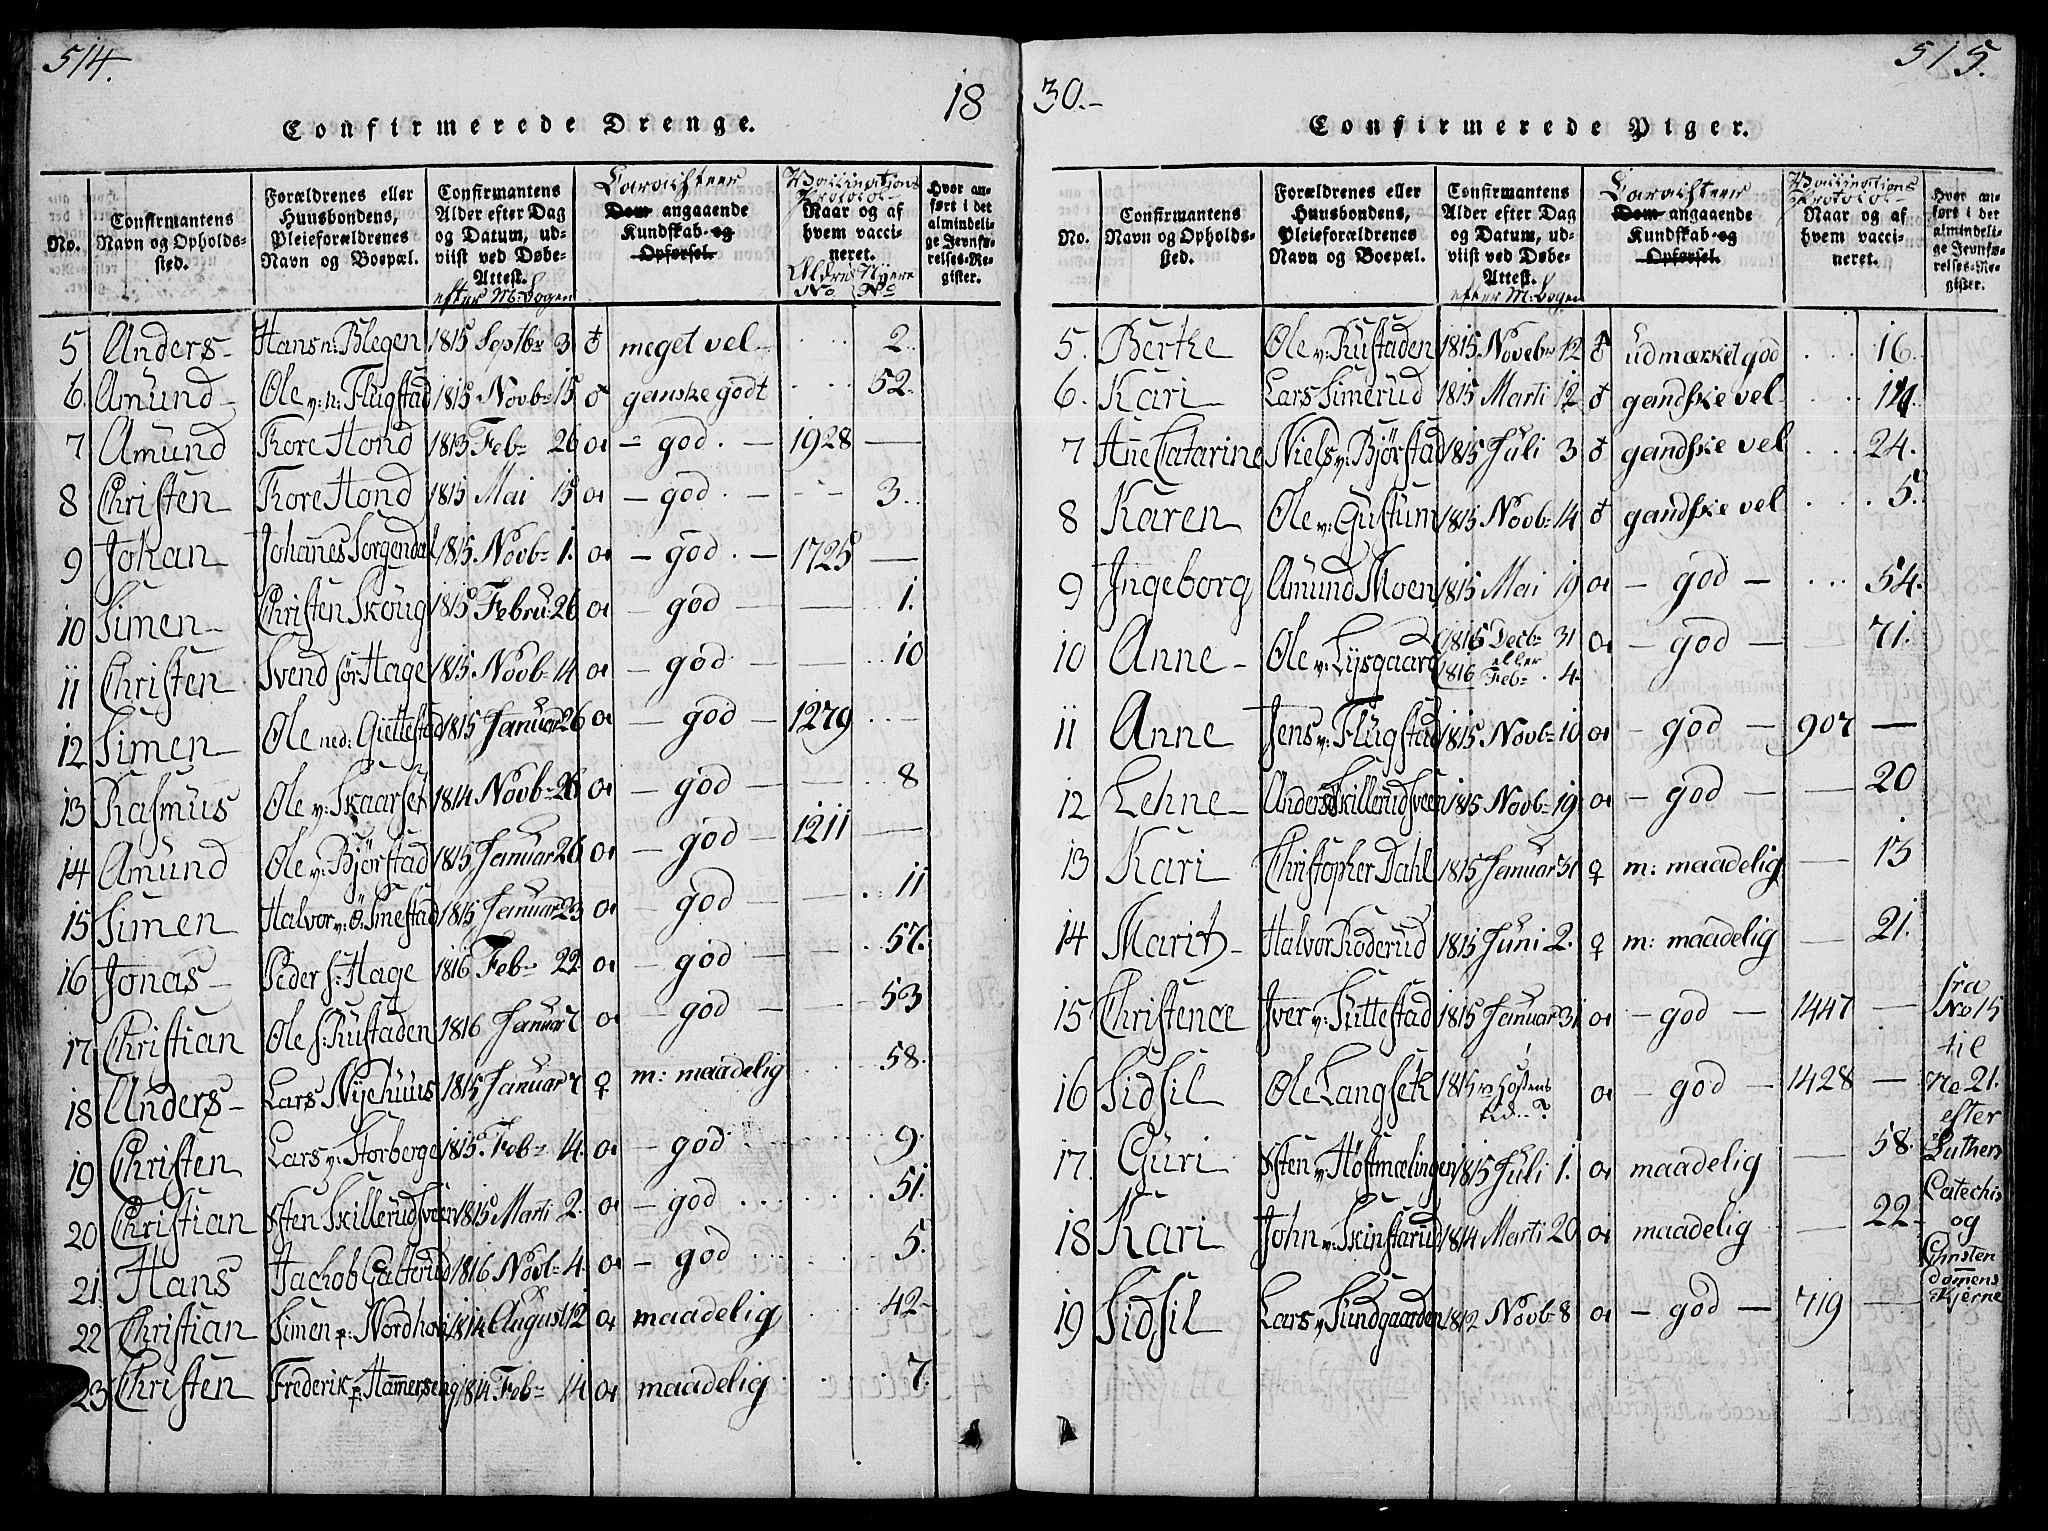 514.
18
Confirmerede Drenge.
No. | Confirmantens Navn og Opholdssted. | Forældrenes eller Huusbondens, Pleieforældrenes Navn og Boepæl. | Confirmantens Alder efter Dag og Datum, udviist ved Døbe-Attest. efter M: bogen | Carachteer Dom angaaende Kundskab og Opførsel. | Vaccinations Protocol Naar og af hvem vaccineret. Ældre No Nyere No | Hvor anført i det almindelige Jevnførelses-Register.
5 Anders Hans n: Blegen 1815 Septbr 3 ♂ meget vel 2.
6. Amund Ole v: n: Flugstad 1815 Novb 15 ♂ ganske godt 52.
7 Amund Tore Hond 1813 Feb 26 god. 1928 —
8 Christen Tore Hond 1815 Mai 15 god. 3.
9 Johan Johannes Sorgendal 1815 Novb 1. god. 1725 —
10 Simen Christen Skoug 1815 Febru: 26 god — 1.
11 Christen Svend sør Hage 1815 Novb 14 god — 10
12 Simen Ole ned: Giettestad 1815 Januar 26 god 1279
13 Rasmus Ole v: Skaarset 1814 Novb 26 god — 8
14 Amund Ole v: Bjørstad 1815 Januar 26 god 1211 —
15 Simen Halvor v: Ø: Smestad 1815 Januar 23 god — 11
16 Jonas Peder s: Hage 1816 Feb 22 god — 57.
17 Christian Ole s: Rustaden 1816 Januar 7 god — 53
18 Anders Lars Nyehuus 1815 Januar 7 ♀ m: maadelig 58.
19 Christen Lars v: Storberge 1815 Feb 14. god 9.
20 Christian Østen Skillerudsveen 1815 Marti 2. god 51.
21 Hans Jachob Galterud 1816 Novb 4. god 5.
22 Christian Simen p: Nordhove 1814 August 12 maadelig 42
23 Christen Frederik p: Hammerseng 1814 Feb 14 maadelig 7.
515.
30.
Confirmerede Piger.
No. | Confirmantens Navn og Opholdssted. | Forældrenes eller Huusbondens, Pleieforældrenes Navn og Boepæl. | Confirmantens Alder efter Dag og Datum, udviist ved Døbe-Attest. efter M: bogen | Carachteer Dom angaaende Kundskab og Opførsel. | Vaccinations Protocol Naar og af hvem vaccineret. | Hvor anført i det almindelige Jevnførelses-Register.
5. Berthe Ole v: Rustaden 1815 Novebr 12 ♂ udmærket god 16.
6. Kari Lars Simerud 1815 Marti 12 ♂ gandske vel
7 Anne Catarine Niels v: Bjørstad 1815 Juli 3 ♂ gandske vel 24.
8 Karen Ole v: Gustum 1815 Novb 14 ♂ gandske vel 5.
9 Ingeborg Amund Moen 1815 Mai 19 god 54.
10 Anne Ole v: Lysgaard 1815 Decb 31 eller 1816 Feb 4. god 71.
11 Anne Jens v: Flugstad 1815 Novb 10 god 907 —
12 Lehne Anders Skillerudsveen 1815 Novb 19 god — 20
13 Kari Christopher Dahl 1815 Januar 31 ♀ m: maadelig — 13
14 Marit Halvor Roderud 1815 Juni 2. ♀ m: maadelig — 21.
15 Christence Iver v: Kittestad 1815 Januar 31 god 1447 —
16 Sidsil Ole Langset 1815 v: Høstens tid..? god 1428 —
17. Guri Østen v: Hostmælingen 1815 Juli 1. maadelig — 58.
18 Kari John v: Skinstarud 1814 Marti 20 maadelig — 22
19 Sidsil Lars v: Sundgaarden 1812 Novb 8 god 719 —
fra
No 15
til
No 21.
efter
Luthers
Catechis
og
Christen
domens
Kjerne